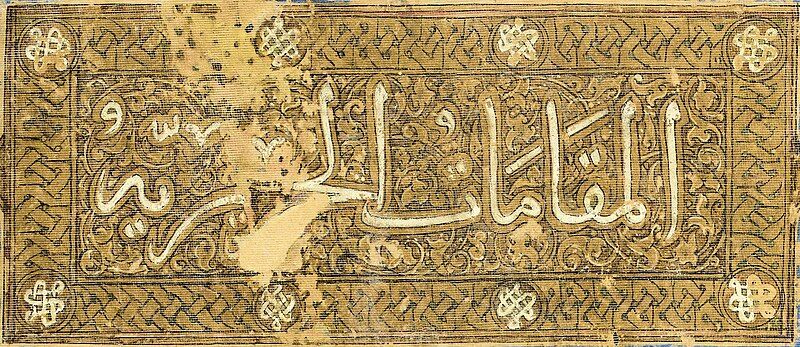 المقامات الحريرية